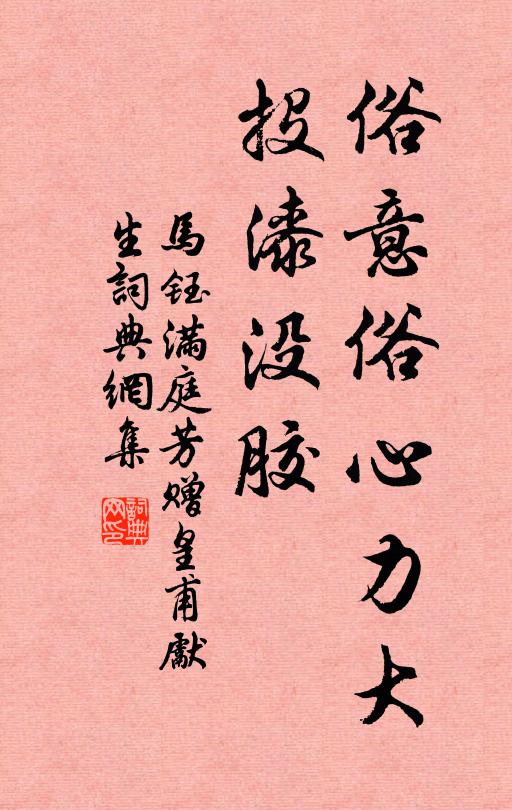 俗意俗心力大
投漆没胶
馬鈺满庭芳赠皇甫獻
生詞典網集
詞典
网印